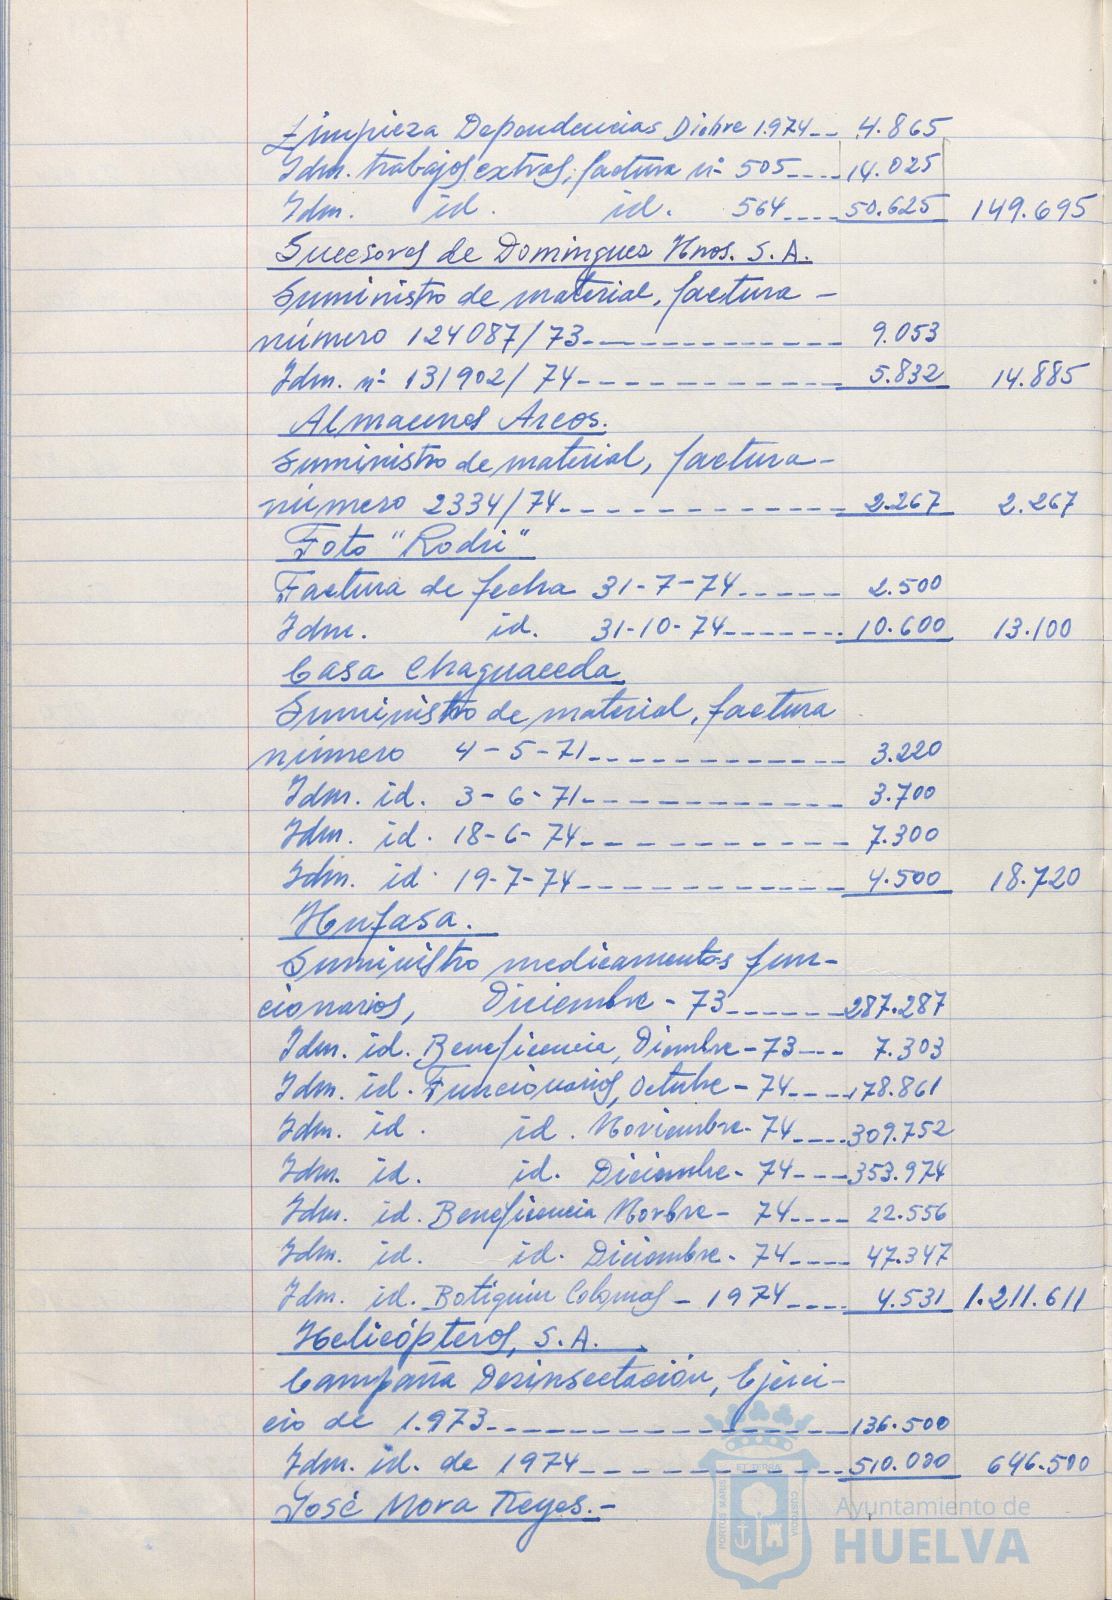 Limpieza Dependencias Dicbre 1.974-- 4.865
Idm. trabajos extras, factura nº 505---- 14.025
Idm. id. id. 564---- 50.625 149.695
Sucesores de Dominguez Hnos. S.A.
Suministro de material, factura -
número 124087/73------------ 9.053
Idm. nº 131902/74------------ 5.832 14.885
Almacenes Arcos.
Suministro de material, factura -
número 2334/74------------ 2.267 2.267
Foto "Rodri"
Factura de fecha 31-7-74----- 2.500
Idm. id. 31-10-74------- 10.600 13.100
Casa Chaguaceda
Suministro de material, factura
número 4-5-71------------ 3.220
Idm. id. 3-6-71------------ 3.700
Idm. id. 18-6-74------------ 7.300
Idm. id. 19-7-74------------ 4.500 18.720
Hufasa.
Suministro medicamentos fun-
cionarios, Diciembre-73------ 287.287
Idm. id. Beneficencia, Diembre-73--- 7.303
Idm. id. Funcionarios, Octubre-74---- 178.861
Idm. id. id. Noviembre-74---- 309.752
Idm. id. id. Diciembre-74---- 353.974
Idm. id. Beneficencia Novbre- 74---- 22.556
Idm. id. id. Diciembre-74---- 47.347
Idm. id. Botiquin Colonias-1974---- 4.531 1.211.611
Helicópteros, S.A.
Campaña Desinsectación, Ejerci-
cio de 1.973---------------- 136.500
Idm. id. de 1974------------ 510.000 646.500
José Mora Reyes.-
PORTUS MARIS ET TERRAE CUSTODIA
Ayuntamiento de
HUELVA